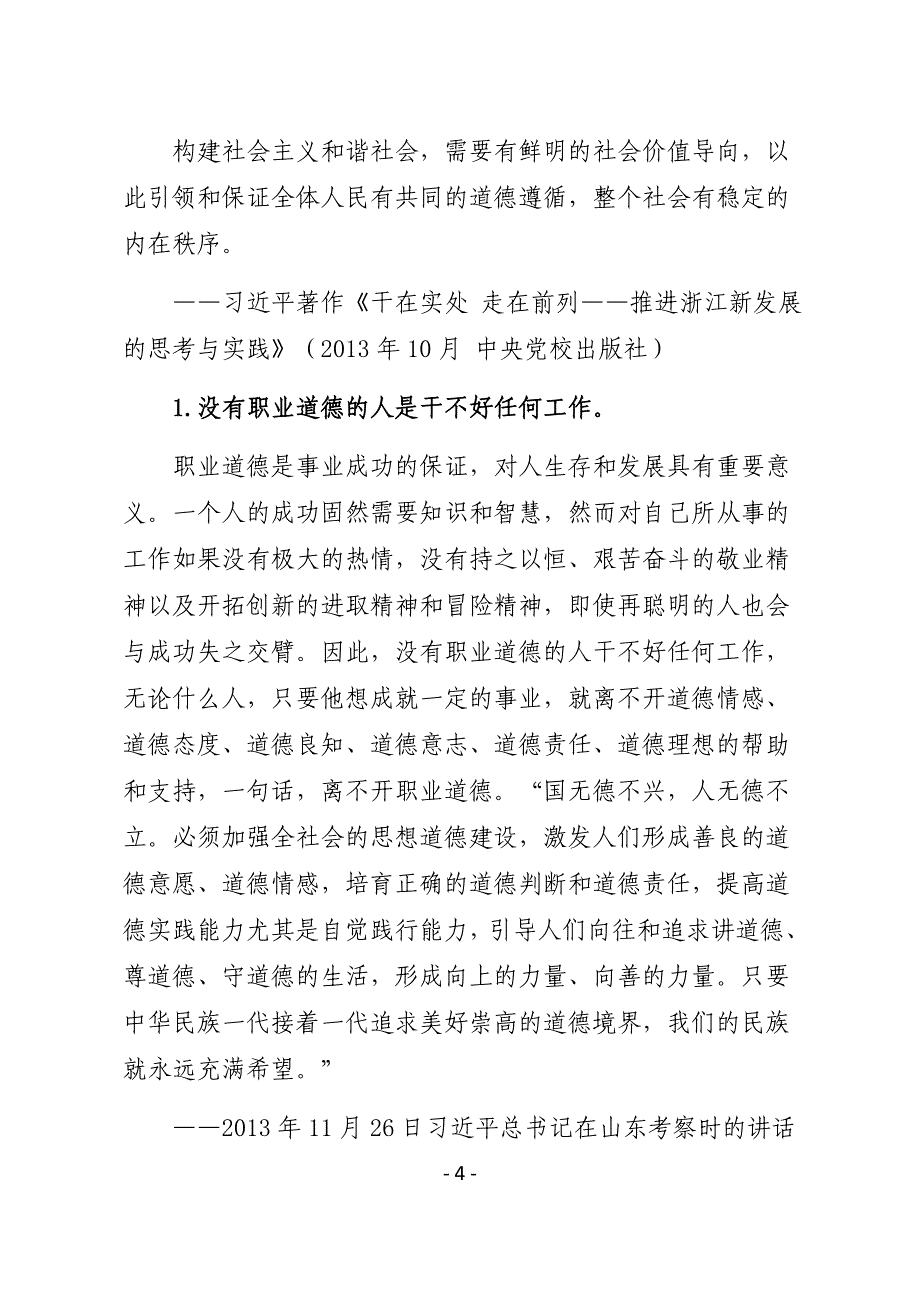 构建社会主义和谐社会，需要有鲜明的社会价值导向，以
此引领和保证全体人民有共同的道德遵循，整个社会有稳定的
内在秩序。
——习近平著作《干在实处 走在前列——推进浙江新发展
的思考与实践》（2013 年 10 月 中央党校出版社）
1.没有职业道德的人是干不好任何工作。
职业道德是事业成功的保证，对人生存和发展具有重要意
义。一个人的成功固然需要知识和智慧，然而对自己所从事的
工作如果没有极大的热情，没有持之以恒、艰苦奋斗的敬业精
神以及开拓创新的进取精神和冒险精神，即使再聪明的人也会
与成功失之交臂。因此，没有职业道德的人干不好任何工作，
无论什么人，只要他想成就一定的事业，就离不开道德情感、
道德态度、道德良知、道德意志、道德责任、道德理想的帮助
和支持，一句话，离不开职业道德。“国无德不兴，人无德不
立。必须加强全社会的思想道德建设，激发人们形成善良的道
德意愿、道德情感，培育正确的道德判断和道德责任，提高道
德实践能力尤其是自觉践行能力，引导人们向往和追求讲道德、
尊道德、守道德的生活，形成向上的力量、向善的力量。只要
中华民族一代接着一代追求美好崇高的道德境界，我们的民族
就永远充满希望。”
——2013 年 11 月 26 日习近平总书记在山东考察时的讲话
- 4 -